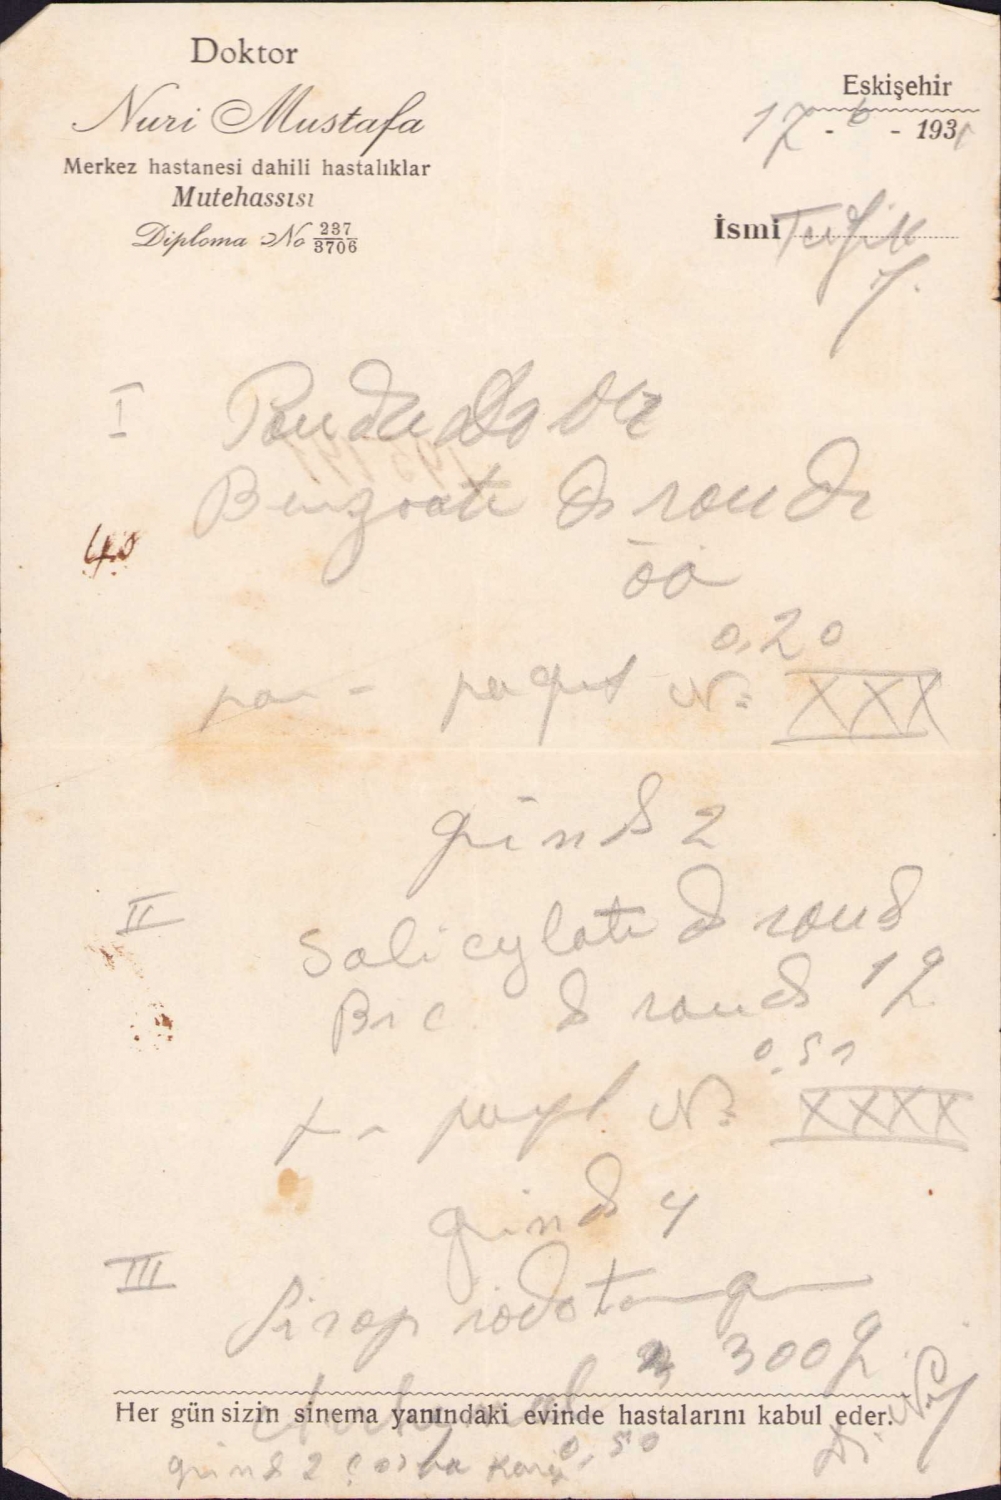 Doktor
Nuri Mustafa
Merkez hastanesi dahili hastalıklar
Mutehassısı
Diploma No 237/3706
Eskişehir
17 - 6 - 193
İsmi Tevfik
I
Poudre de
Benzoate de soude
āā
0,20
paquet No XXX
günde 2
II
Salicylate de soude
Bic de soude 1g
0,50
No XXXX
günde 4
III
Sirop iodotan
300g
Her gün sizin sinema yanındaki evinde hastalarını kabul eder.
0,50
günde 2 çorba
Dr. Nuri